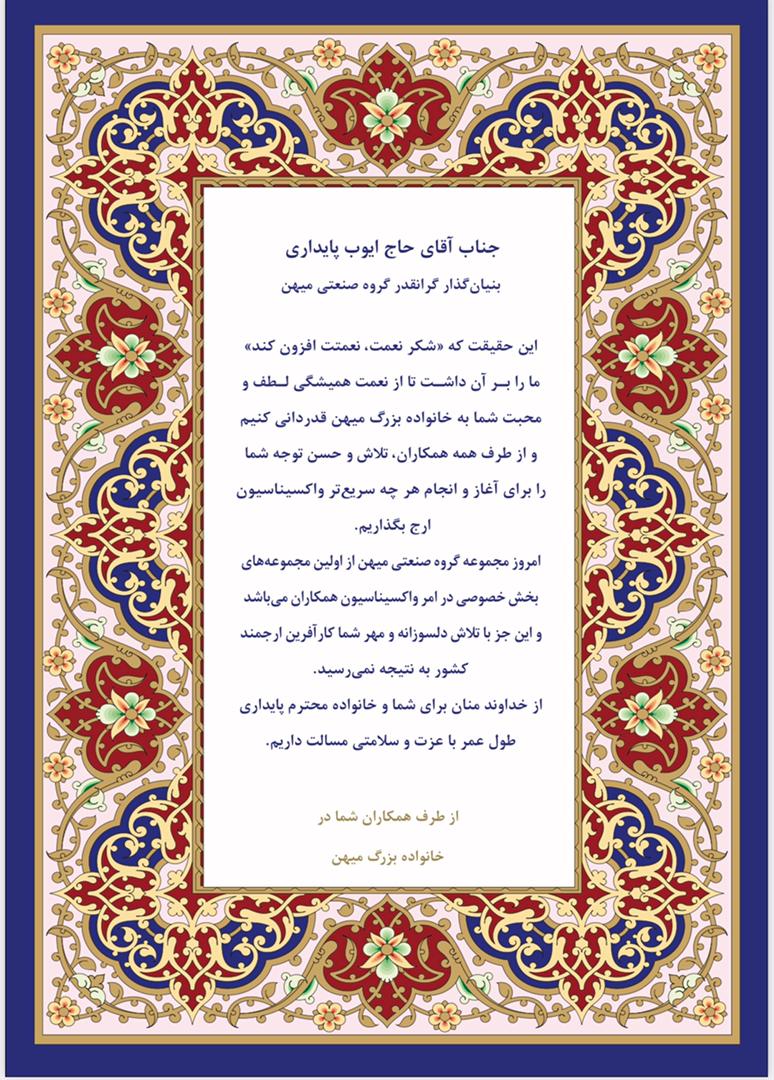 جناب آقای حاج ایوب پایداری
بنیان‌گذار گرانقدر گروه صنعتی میهن
این حقیقت که «شکر نعمت، نعمتت افزون کند»
ما را بـر آن داشـت تا از نعمت همیشگی لـطف و
محبت شما به خانواده بزرگ میهن قدردانی کنیم
و از طرف همه همکاران، تلاش و حسن توجه شما
را برای آغاز و انجام هر چه سریع‌تر واکسیناسیون
ارج بگذاریم.
امروز مجموعه گروه صنعتی میهن از اولین مجموعه‌های
بخش خصوصی در امر واکسیناسیون همکاران می‌باشد
و این جز با تلاش دلسوزانه و مهر شما کارآفرین ارجمند
کشور به نتیجه نمی‌رسید.
از خداوند منان برای شما و خانواده محترم پایداری
طول عمر با عزت و سلامتی مسالت داریم.
از طرف همکاران شما در
خانواده بزرگ میهن